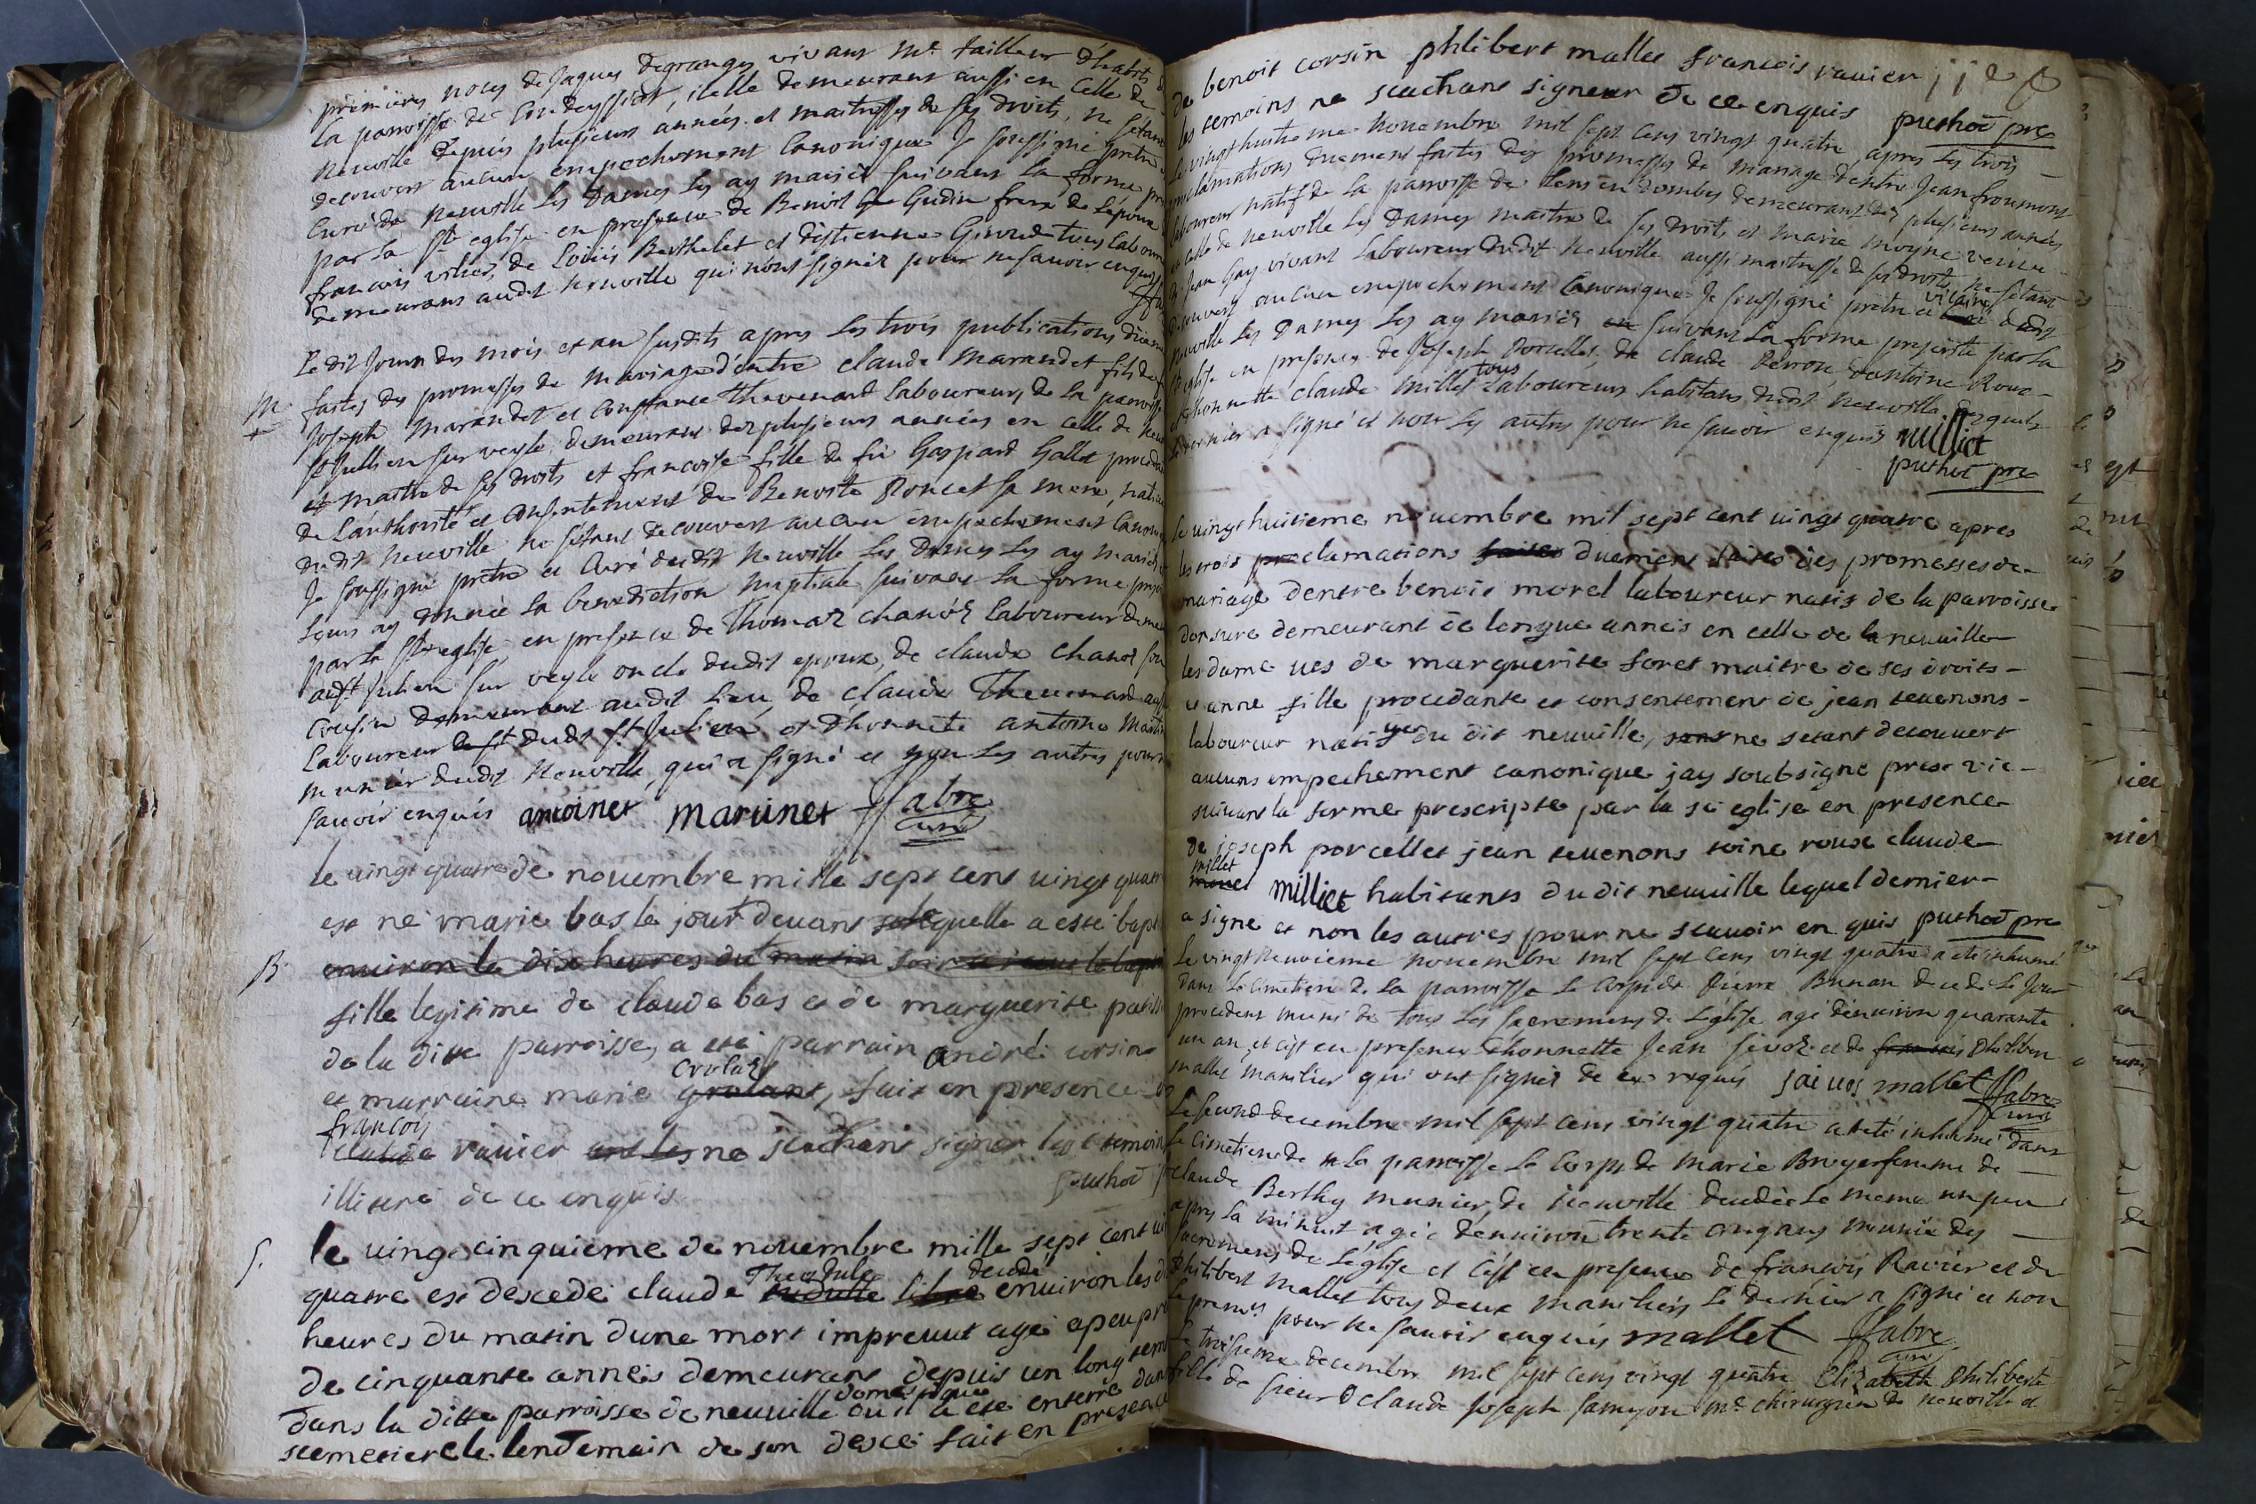 premieres noces de Jaques Degranges vivans Me tailleur d'habits
la parroisse de Condeyssiat, icelle demeurant aussi en Celle de
Neuville depuis plusieurs années et maitresse de ses droits, ne s'étant
decouvert aucun empechement Canonique Je soussigné pretre
Curé de Neuville les Dames les ay mariés suivant la forme
par la Ste eglise en presence de Benoit Gudin frere de l'épouse
francois vilier, de Loüis Berthelet et d'Estienne Giroud tous
demeurans audit Neuville qui n'ont signés pour ne savoir enquis
Le dit Jour des mois et an susdits apres les trois publications
M faites des promesses de Mariage d'entre claude Marandet fils de
Joseph Marandet et Constance Thevenard Laboureurs de la parroisse
St Jullien sur veyle, demeurant dez plusieurs années en celle de
et maitre de ses droits et francoise fille de fû Gaspard Gallet
de L'authorité et consentement de Benoite Poncet sa mere,
dudit Neuville ne s'étant decouvert aucun empechement
Je soussigné pretre et Curé dudit Neuville les Dames les ay mariés
leur ay donnée la benediction nuptiale suivant la forme
par la Ste eglise, en presence de Thomas chanel Laboureur
a St Julien sur veyle oncle dudit epoux, de claude chanel son
Cousin demeurant audit Lieu, de claude Thevenard
Laboureur dudit St Julien et d'honnete antoine
munier dudit Neuville, qui a signé et non les autres pour
savoir enquis antoinet martinet ffabre
Curé
le vingt quatre de novembre mille sept cent vingt
est ne marie bas le jour devant laquelle a este
B. environ le dix heures du matin soir
fille legitime de claude bas et de marguerite
de la dite parroisse, a ete parrain andré corsin
et marraine marie crolas grolant, fait en presence
françois
claude ravier ne scachant signer
illitere de ce enquis puthod
S. le vingt cinquieme de novembre mille sept cent
quatre est descede claude Theodule decedé environ les
heures du matin dune mort impreuut agé apeupre
de cinquante années demeurant depuis un long
dans la ditte parroisse de neuville domestique ou il a ete enterré dans
scemetiere le lendemain de son descé fait en presence
de benoit corsin phlibert mallet francois ravier
les temoins ne scachant signeur de ce enquis puthod pre
Le vingt huitieme Novembre mil sept cens vingt quatre, apres les trois
proclamations duement faites des promesses de mariage d'entre Jean froumont
laboureur natif de la parroisse de Lent en dombes demeurant dez plusieurs années
en celle de Neuville les Dames maitre de ses droits et Marie moyne veuve
de Jean Gay vivant Laboureur dudit Neuville aussi maitresse de ses droits ne s'étant
decouvert aucun empechement Canonique Je soussigné pretre et vicaire dudit
Neuville les Dames les ay mariés suivant la forme prescrite par la
Ste eglise en presence de Joseph Porcellet, de claude Perron, d'antoine Roux
d'honnette claude Milliet tous Laboureurs habitans dudit Neuville, desquels
le dernier a signé et non les autres pour ne savoir enquis milliet
puthod pre
le vingt huitieme novembre mil sept cent vingt quatre apres
les trois proclamations faites duement faites des promesses de
mariage dentre benoit morel laboureur natif de la parroisse
donsure demeurant de longue années en celle de la neuville
les dame ues de marguerite foret maitre de ses droits
et anne fille procedante et consentement de jean tevenons
laboureur natif du dit neuville, ne setant decouvert
aucuns empechement canonique jay soubsigne pretre vic
suivant la forme prescripte par la ste eglise en presence
de joseph porcellet jean tevenons toine roux claude
millet
milliet habitants du dit neuville lequel dernier
a signe et non les autres pour ne scauoir en quis puthod pre
Le vingt neuvieme novembre mil sept cens vingt quatre a eté inhumé
dans le Cimetiere de la parroisse le corps de Pierre Brunan decedé le Jour
precedent muni de tous les sacremens de L'église agé d'environ quarante
un an, et c'est en presence d'honnette Jean Jivoz et de francois Philibert
mallet manillier qui ont signés de ce requis mallet ffabre
Curé
Le second decembre mil sept cens vingt quatre a eté inhumé dans
le Cimetiere de la parroisse le Corps de Marie Broyer femme de
claude Berthy munier, de Neuville decedée le meme un peu
apres la minuit agée d'environ trente cinq ans munie des
sacremens de L'église et c'est en presence de françois Ravier et de
Philibert Mallet tous deux manilliers le dernier a signé et non
le premier pour ne savoir enquis mallet ffabre
Curé
Le troisieme decembre mil sept cens vingt quatre Elizabeth Philiberte
fille de sieur Claude Joseph Samyon Me chirurgien de Neuville et